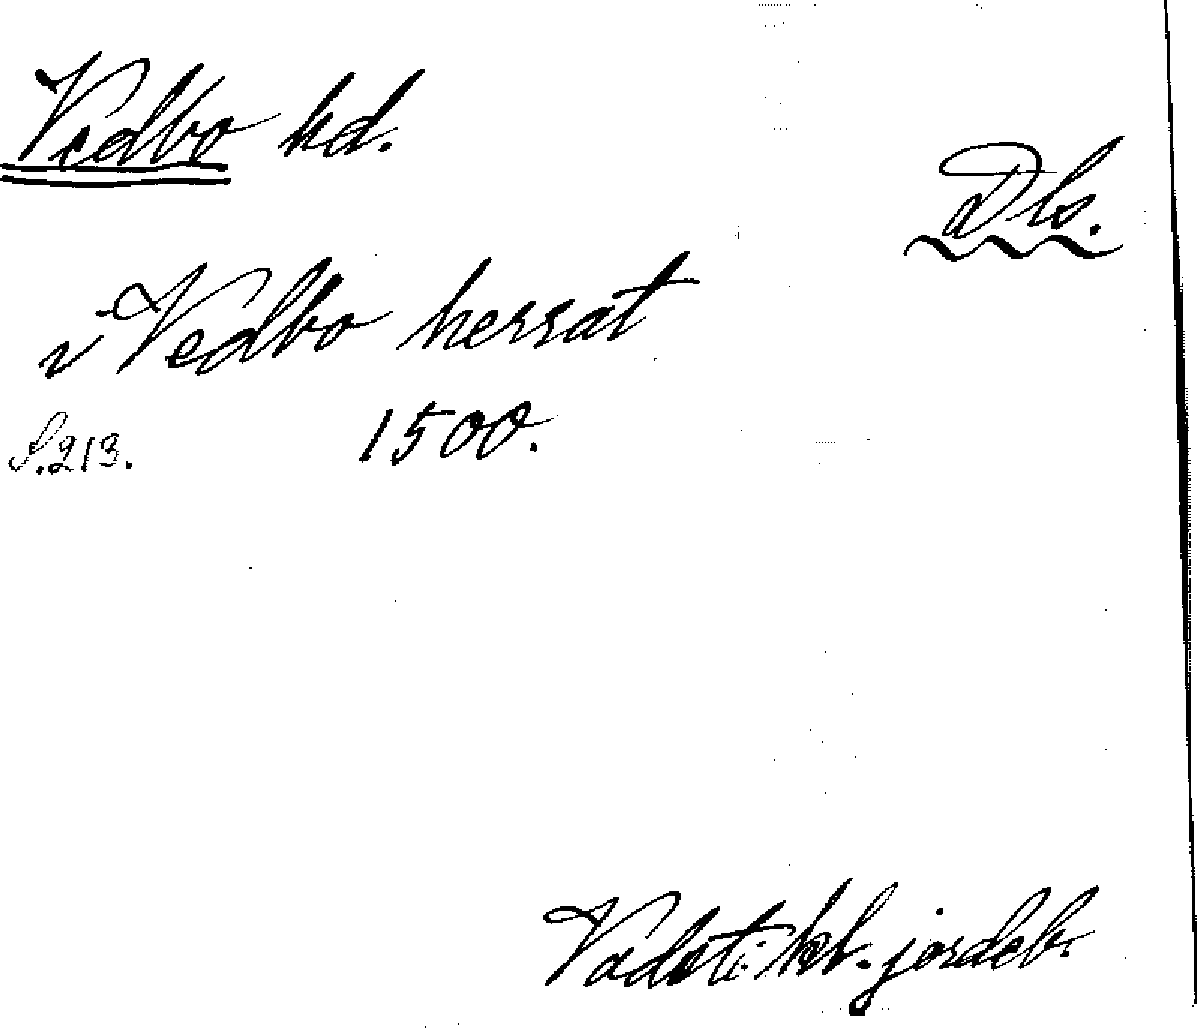 Vedbo hd.
Dls.
i Vedbo herrat
S. 213. 1500.
Vadst. kl. jordeb.